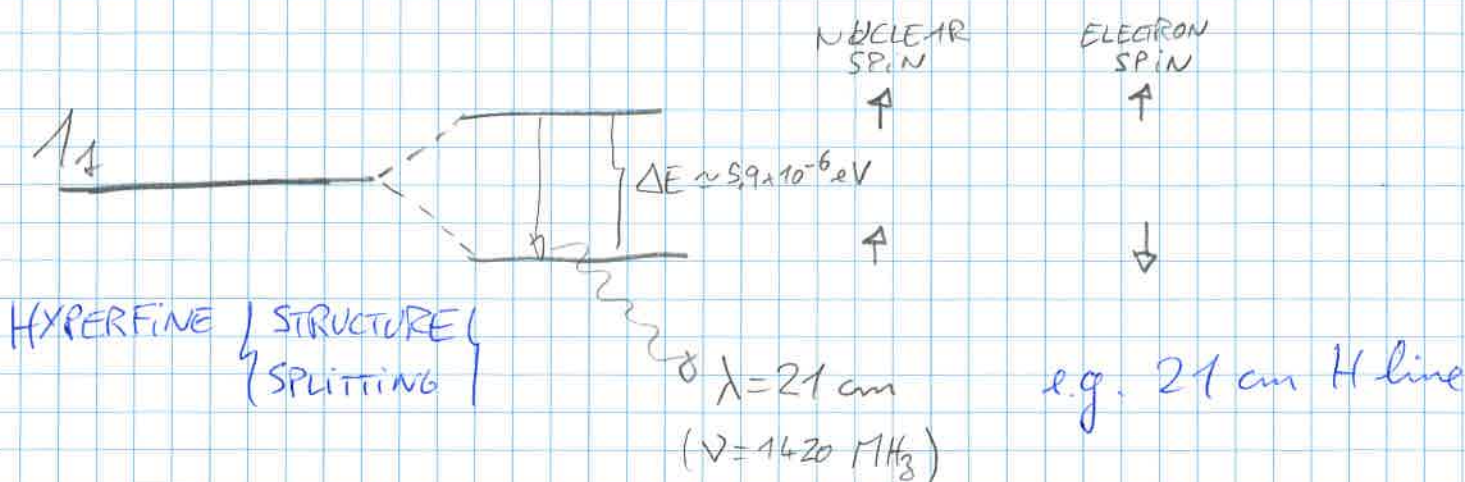 NUCLEAR SPIN
ELECTRON SPIN
1s
ΔE ~ 5,9x10⁻⁶ eV
HYPERFINE { STRUCTURE }
{ SPLITTING }
λ=21 cm
e.g. 21 cm H line
(ν=1420 MHz)